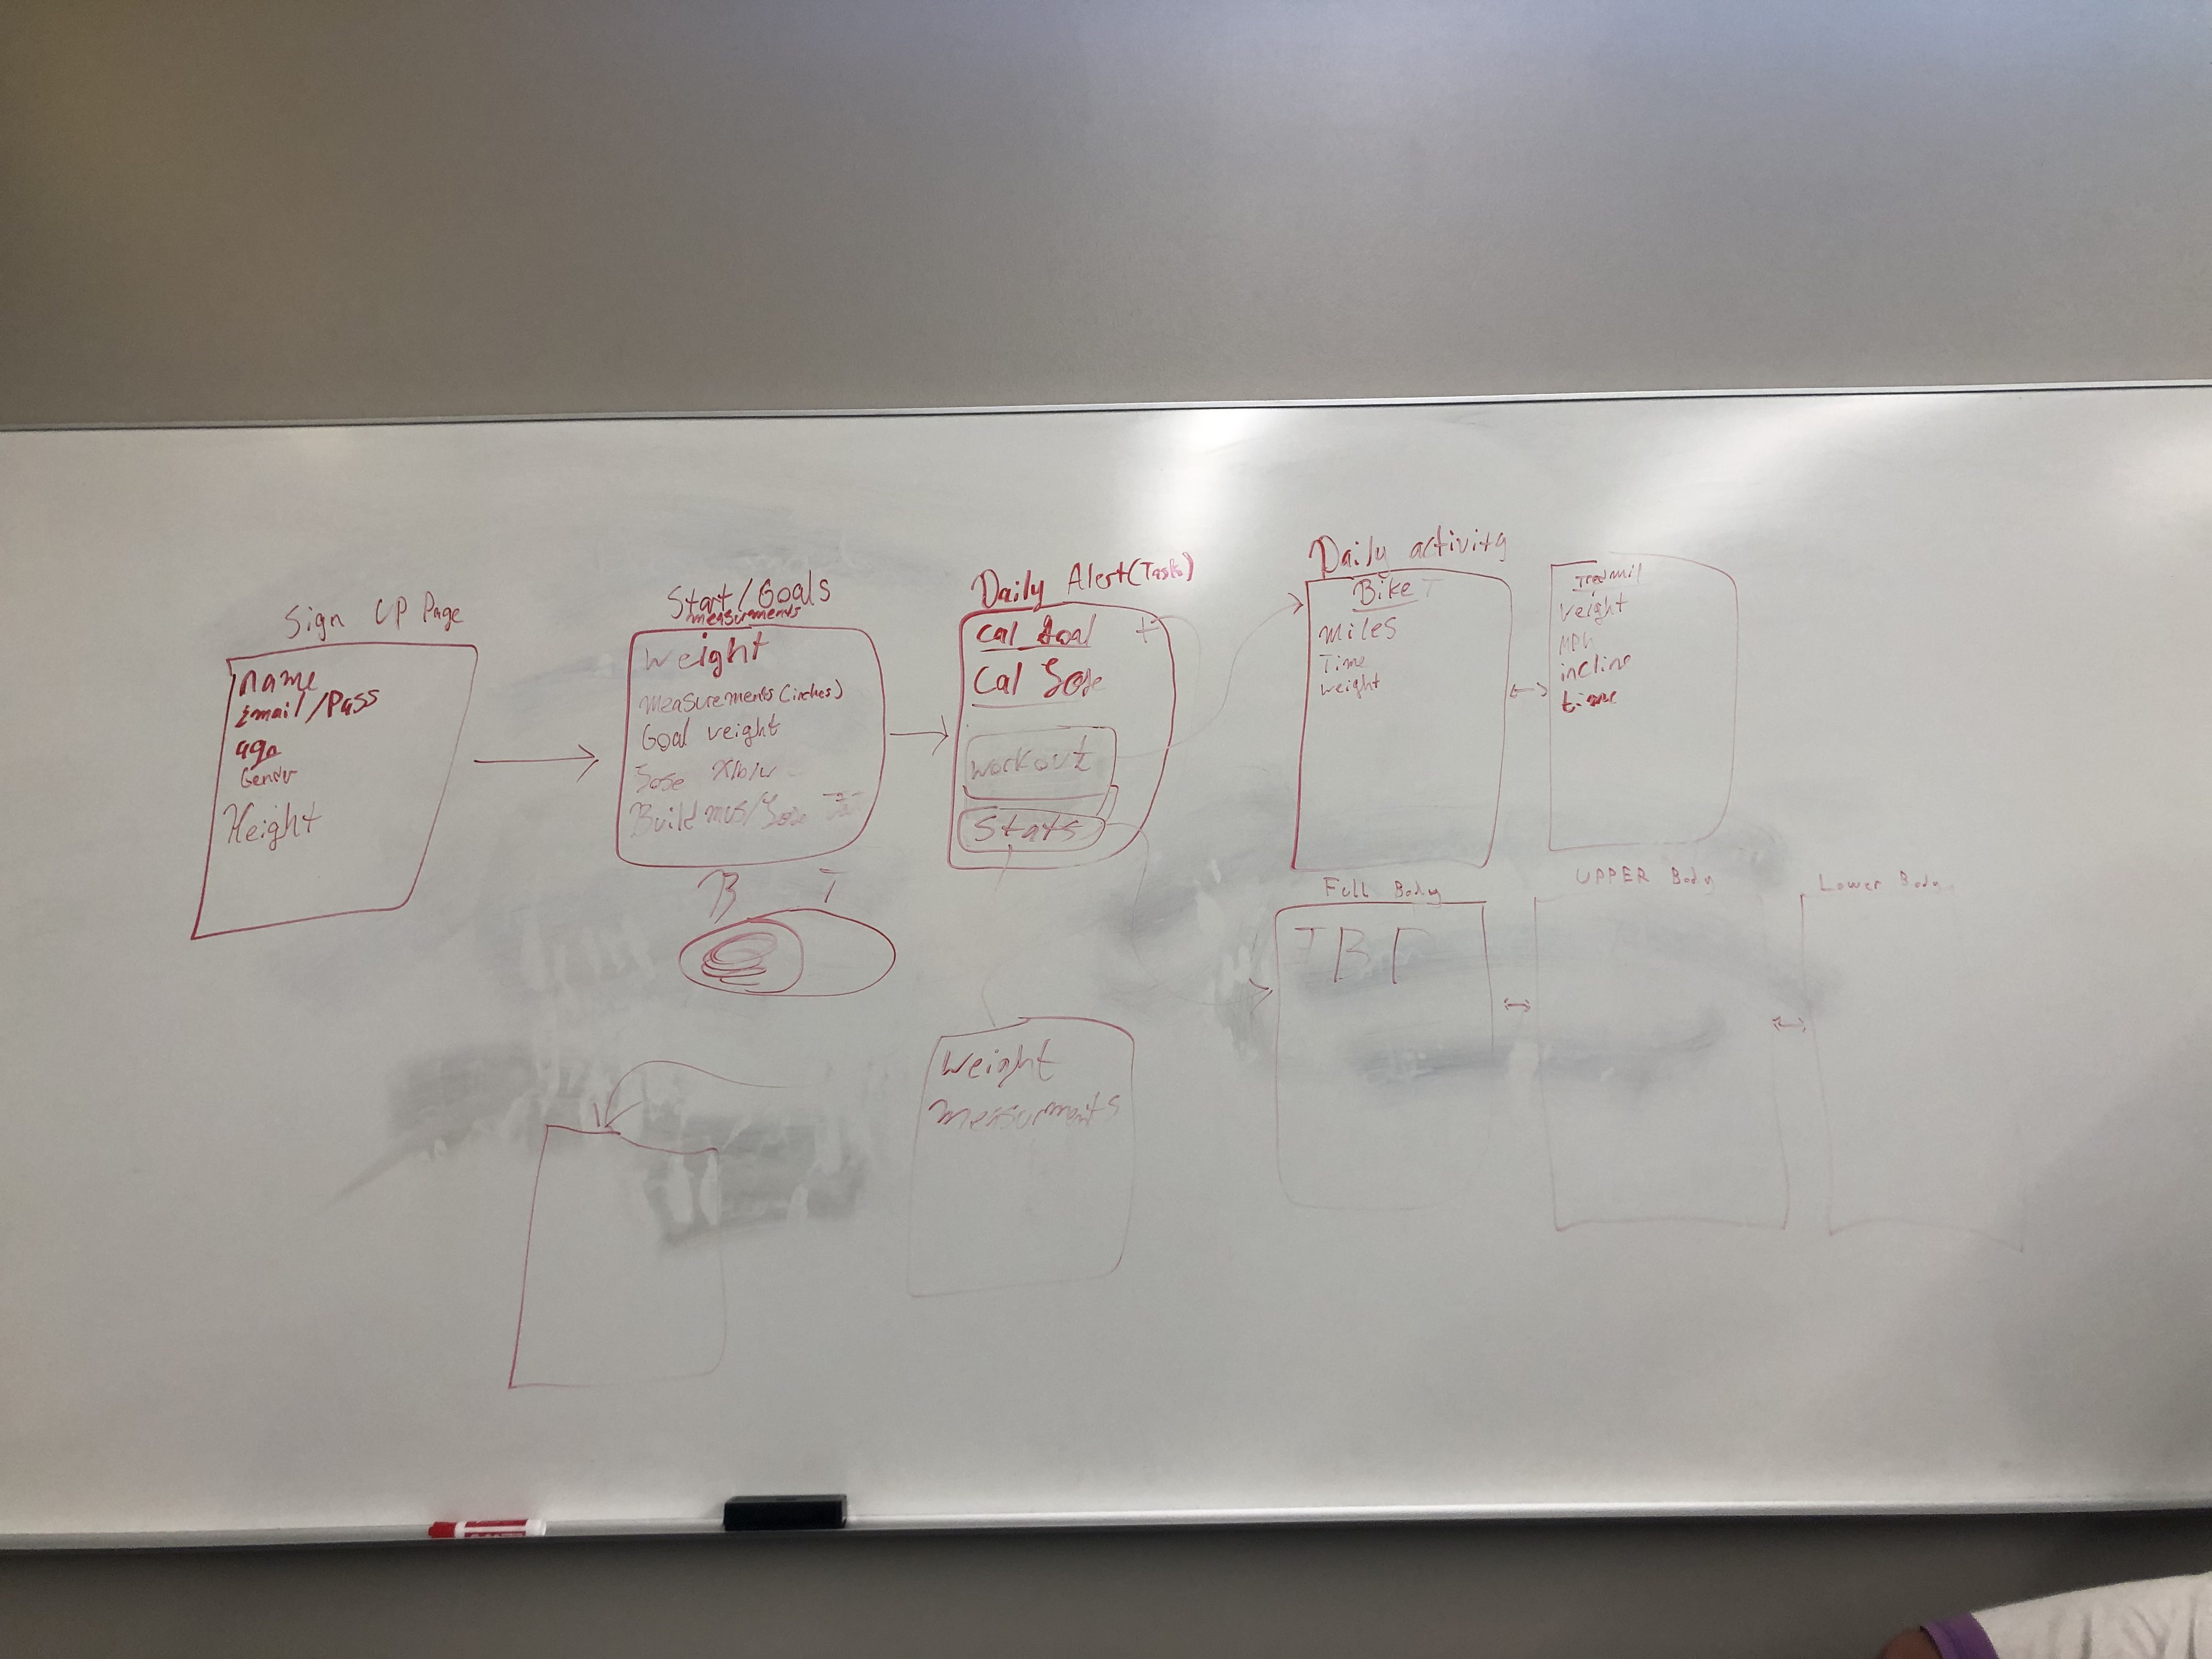 Sign UP Page
name
Email/Pass
age
Gender
Height
Start/Goals
measurements
weight
measurements(inches)
Goal weight
Lose X lb/w
Build mus/Lose
B T
Daily Alert(Tasks)
Cal Goal +
Cal Lose
workout
Stats
Weight
measurments
Daily activity
Bike T
miles
Time
weight
Tredmil
weight
MPH
incline
time
Full Body
TBD
UPPER Body
Lower Body